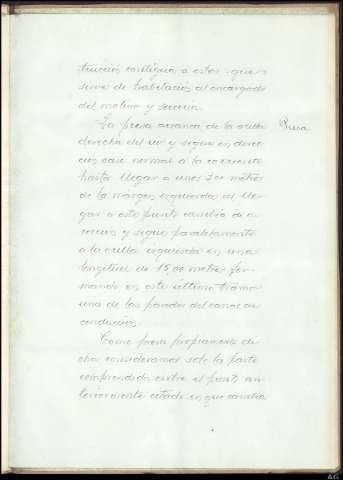 trucción contigua a estas que
sirve de habitación al encargado
del molino y serrería.
La presa arranca de la orilla
derecha del río y sigue en direc-
ción casi normal á la corriente
hasta llegar a unos metros
de la margen izquierda al lle-
gar a este punto cambia de di-
rección y sigue paralelamente
a la orilla izquierda en una
longitud de 15,00 metros for-
mando en este último tramo
una de las paredes del canal de
conducción.
Como presa propiamente di-
cha consideramos solo la parte
comprendida entre el punto an-
teriormente citado en que cambia
Presa